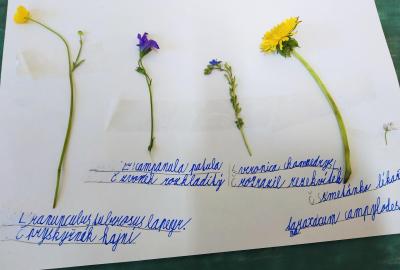 L campanula patula
Č zvonek rozkladitý
L veronica chamaedrys
Č rozrazil rezekvítek
Č smetánka lékař
taraxacum campylodes
L ranunculus
Č pryskyřník hajní